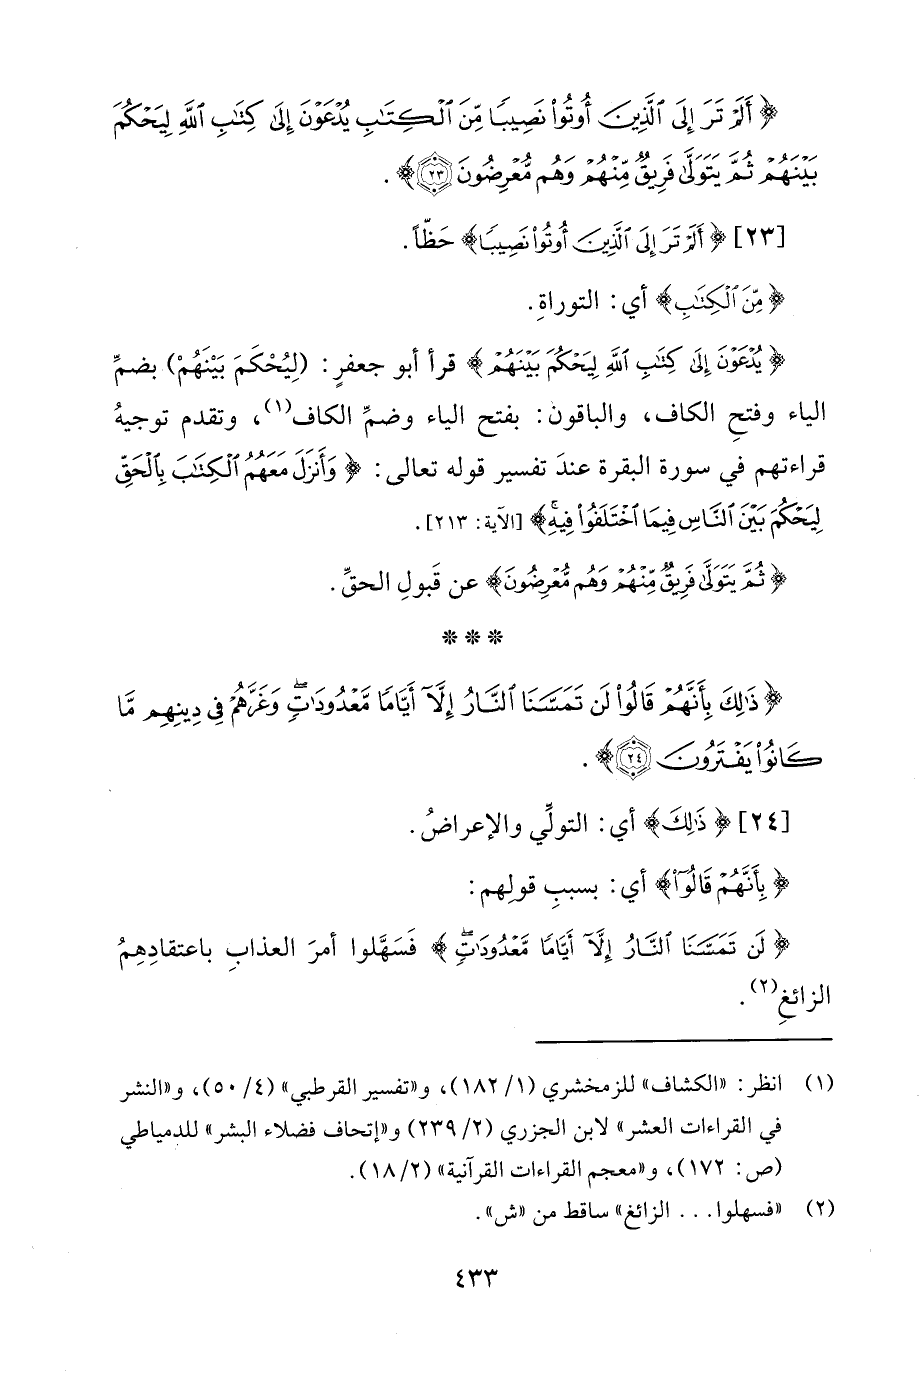 ﴿أَلَمْ تَرَ إِلَى الَّذِينَ أُوتُوا۟ نَصِيبًا مِّنَ الْكِتَٰبِ يُدْعَوْنَ إِلَىٰ كِتَٰبِ اللَّهِ لِيَحْكُمَ
بَيْنَهُمْ ثُمَّ يَتَوَلَّىٰ فَرِيقٌ مِّنْهُمْ وَهُم مُّعْرِضُونَ ٢٣﴾.
[٢٣] ﴿أَلَمْ تَرَ إِلَى الَّذِينَ أُوتُوا۟ نَصِيبًا﴾ حَظّاً.
﴿مِّنَ الْكِتَٰبِ﴾ أي: التوراةِ.
﴿يُدْعَوْنَ إِلَىٰ كِتَٰبِ اللَّهِ لِيَحْكُمَ بَيْنَهُمْ﴾ قرأ أبو جعفرٍ: (لِيُحْكَمَ بَيْنَهُمْ) بضمِّ
الياء وفتحِ الكاف، والباقون: بفتح الياء وضمِّ الكاف(١)، وتقدم توجيهُ
قراءتهم في سورة البقرة عندَ تفسير قوله تعالى: ﴿وَأَنزَلَ مَعَهُمُ الْكِتَٰبَ بِالْحَقِّ
لِيَحْكُمَ بَيْنَ النَّاسِ فِيمَا اخْتَلَفُوا۟ فِيهِ﴾ [الآية: ٢١٣].
﴿ثُمَّ يَتَوَلَّىٰ فَرِيقٌ مِّنْهُمْ وَهُم مُّعْرِضُونَ﴾ عن قَبولِ الحقِّ.
* * *
﴿ذَٰلِكَ بِأَنَّهُمْ قَالُوا۟ لَن تَمَسَّنَا النَّارُ إِلَّآ أَيَّامًا مَّعْدُودَٰتٍ ۖ وَغَرَّهُمْ فِى دِينِهِم مَّا
كَانُوا۟ يَفْتَرُونَ ٢٤﴾.
[٢٤] ﴿ذَٰلِكَ﴾ أي: التولِّي والإعراضُ.
﴿بِأَنَّهُمْ قَالُوٓا۟﴾ أي: بسببِ قولِهم:
﴿لَن تَمَسَّنَا النَّارُ إِلَّآ أَيَّامًا مَّعْدُودَٰتٍ ۖ﴾ فَسَهَّلوا أمرَ العذابِ باعتقادِهِمُ
الزائغِ(٢).
(١) انظر: «الكشاف» للزمخشري (١/ ١٨٢)، و«تفسير القرطبي» (٤/ ٥٠)، و«النشر
في القراءات العشر» لابن الجزري (٢/ ٢٣٩) و«إتحاف فضلاء البشر» للدمياطي
(ص: ١٧٢)، و«معجم القراءات القرآنية» (٢/ ١٨).
(٢) «فسهلوا... الزائغ» ساقط من «ش».
٤٣٣